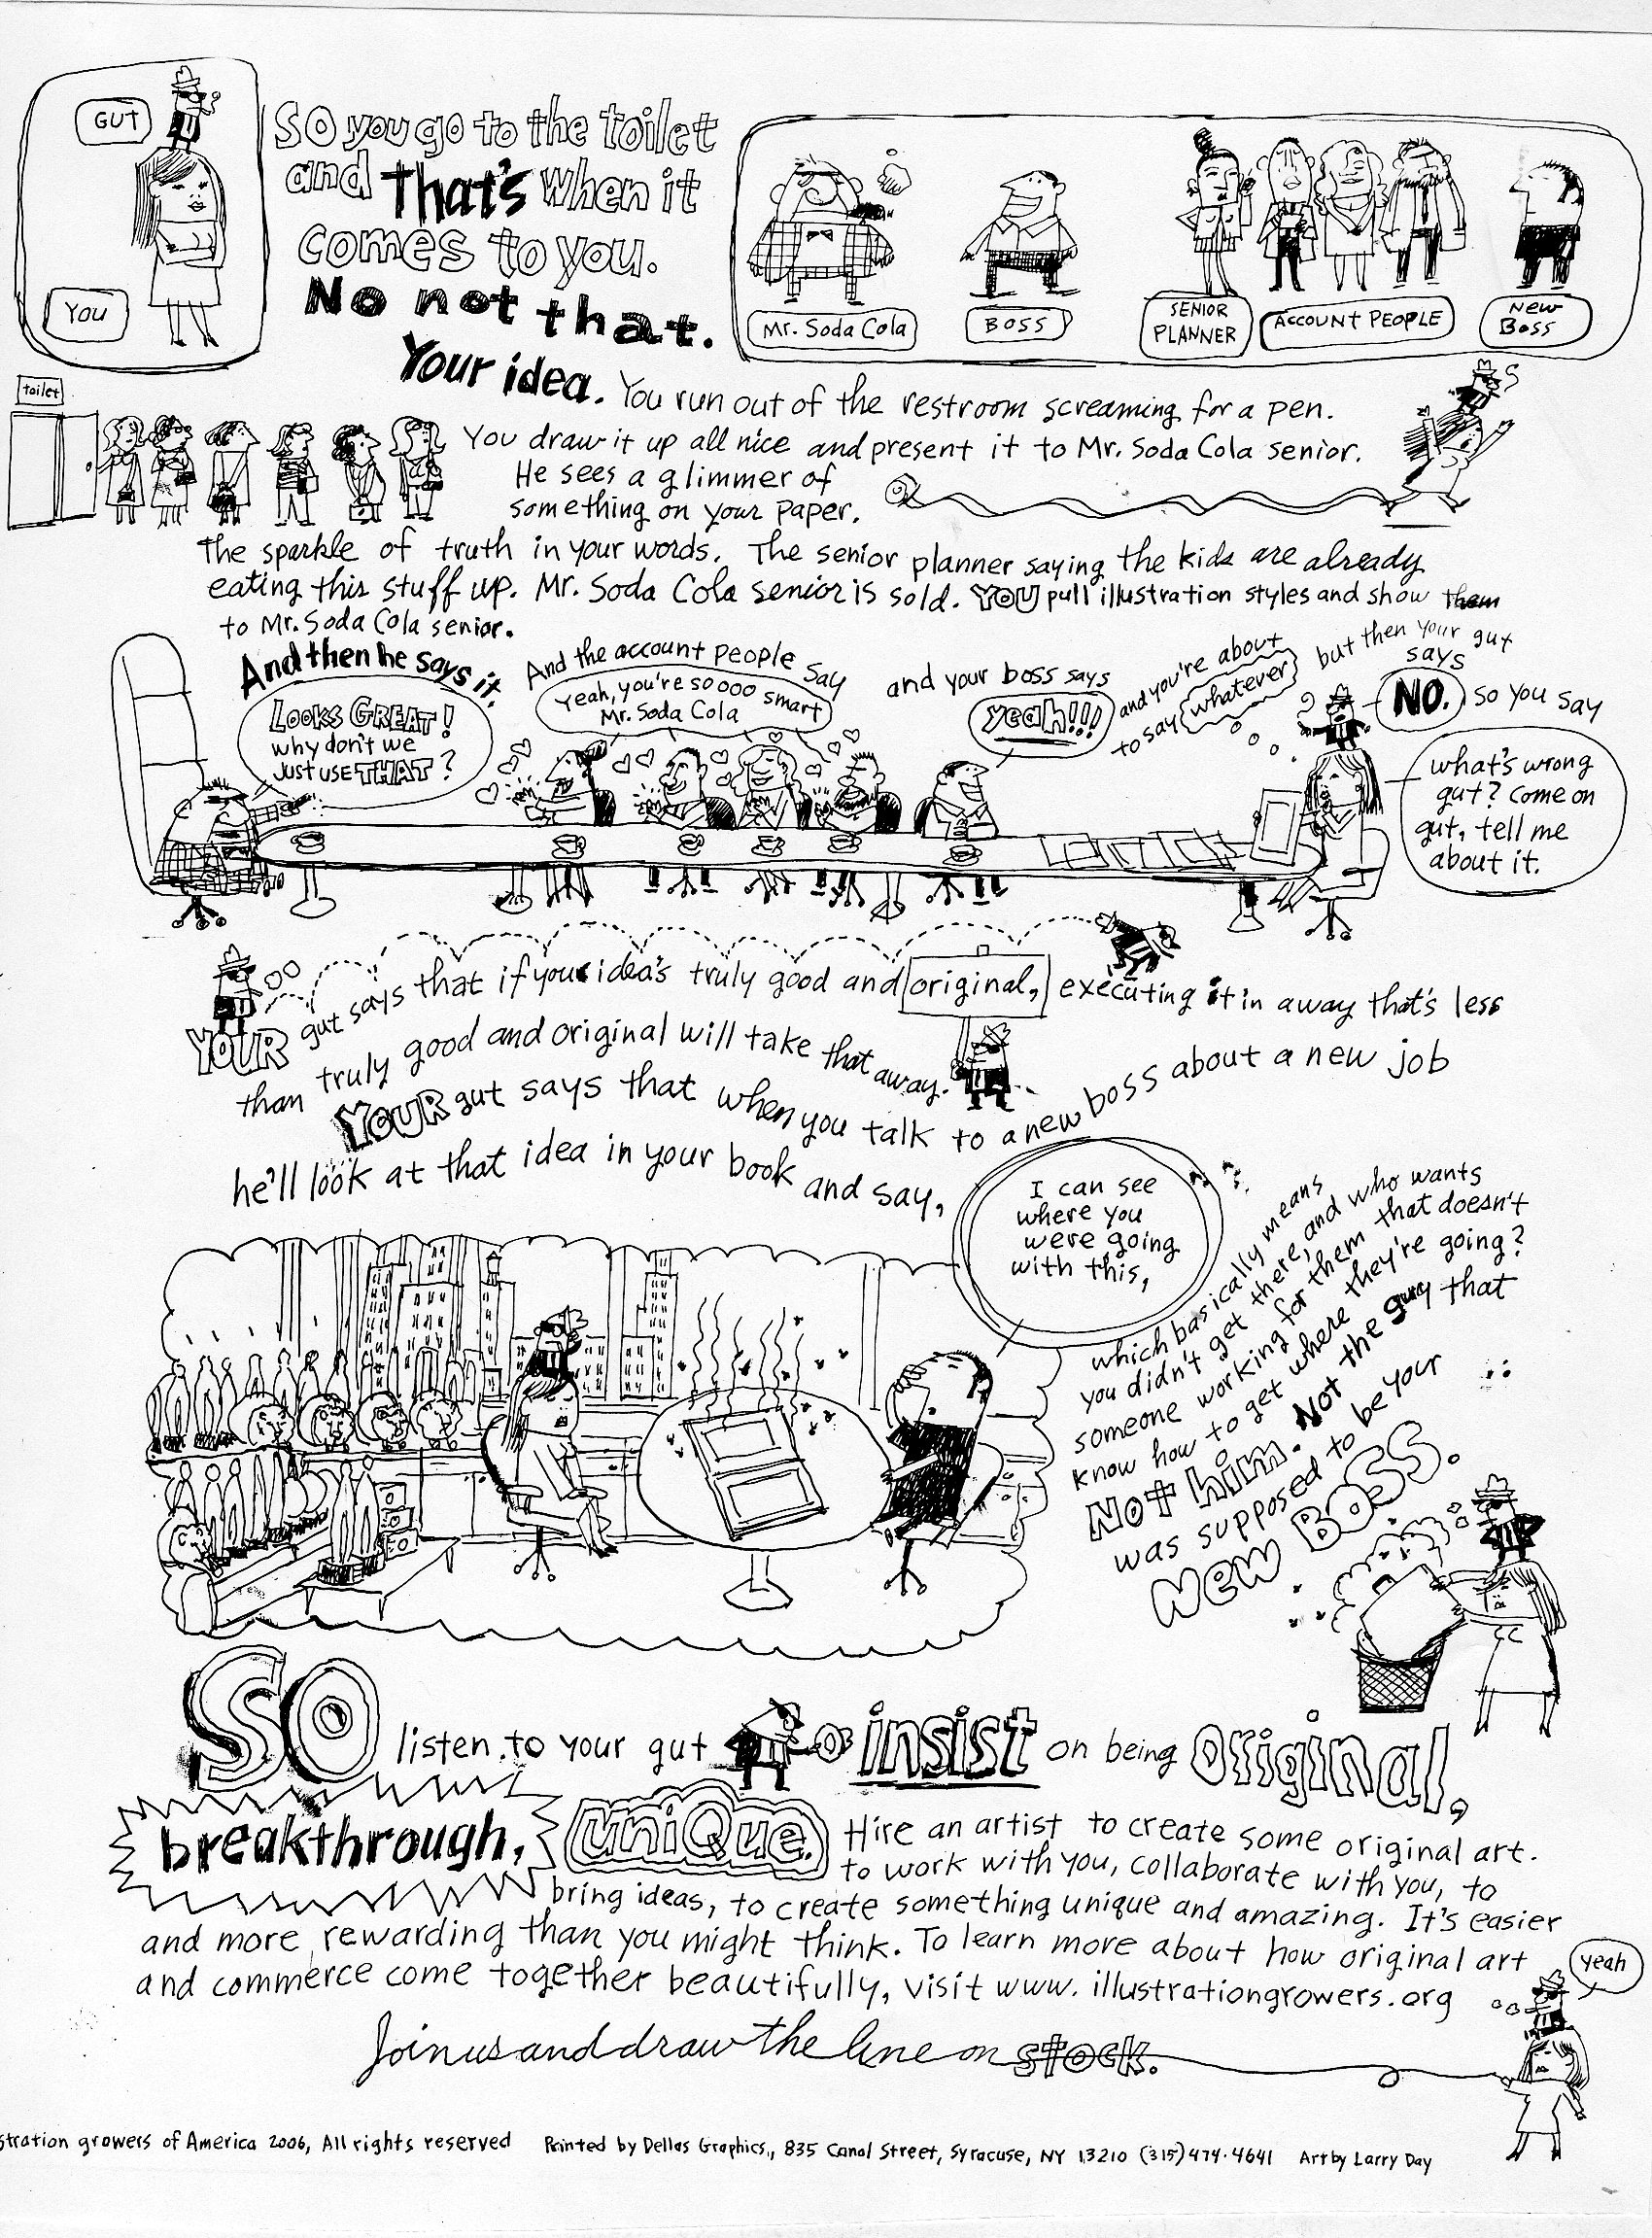 GUT
YOU
So you go to the toilet
and that's when it
comes to you.
No not that.
Your idea. You run out of the restroom screaming for a pen.
Mr. Soda Cola
BOSS
SENIOR
PLANNER
ACCOUNT PEOPLE
New
Boss
toilet
You draw it up all nice and present it to Mr. Soda Cola senior.
He sees a glimmer of
something on your paper.
The sparkle of truth in your words. The senior planner saying the kids are already
eating this stuff up. Mr. Soda Cola senior is sold. YOU pull illustration styles and show them
to Mr. Soda Cola senior.
And then he says it.
LOOKS GREAT!
why don't we
just use THAT?
And the account people say
Yeah, you're soooo smart
Mr. Soda Cola
and your boss says
yeah!!!
and you're about
to say whatever
but then your gut
says
NO. so you say
what's wrong
gut? Come on
gut, tell me
about it.
YOUR gut says that if your idea's truly good and original, executing it in a way that's less
than truly good and original will take that away.
YOUR gut says that when you talk to a new boss about a new job
he'll look at that idea in your book and say,
I can see
where you
were going
with this,
which basically means
you didn't get there, and who wants
someone working for them that doesn't
know how to get where they're going?
Not him. Not the guy that
was supposed to be your
New BOSS.
SO listen to your gut insist on being original,
breakthrough, uniQue. Hire an artist to create some original art.
to work with you, collaborate with you, to
bring ideas, to create something unique and amazing. It's easier
and more rewarding than you might think. To learn more about how original art
and commerce come together beautifully, visit www.illustrationgrowers.org
yeah
Join us and draw the line on stock.
stration growers of America 2006, All rights reserved Printed by Dellas Graphics, 835 Canal Street, Syracuse, NY 13210 (315) 474-4641 Art by Larry Day